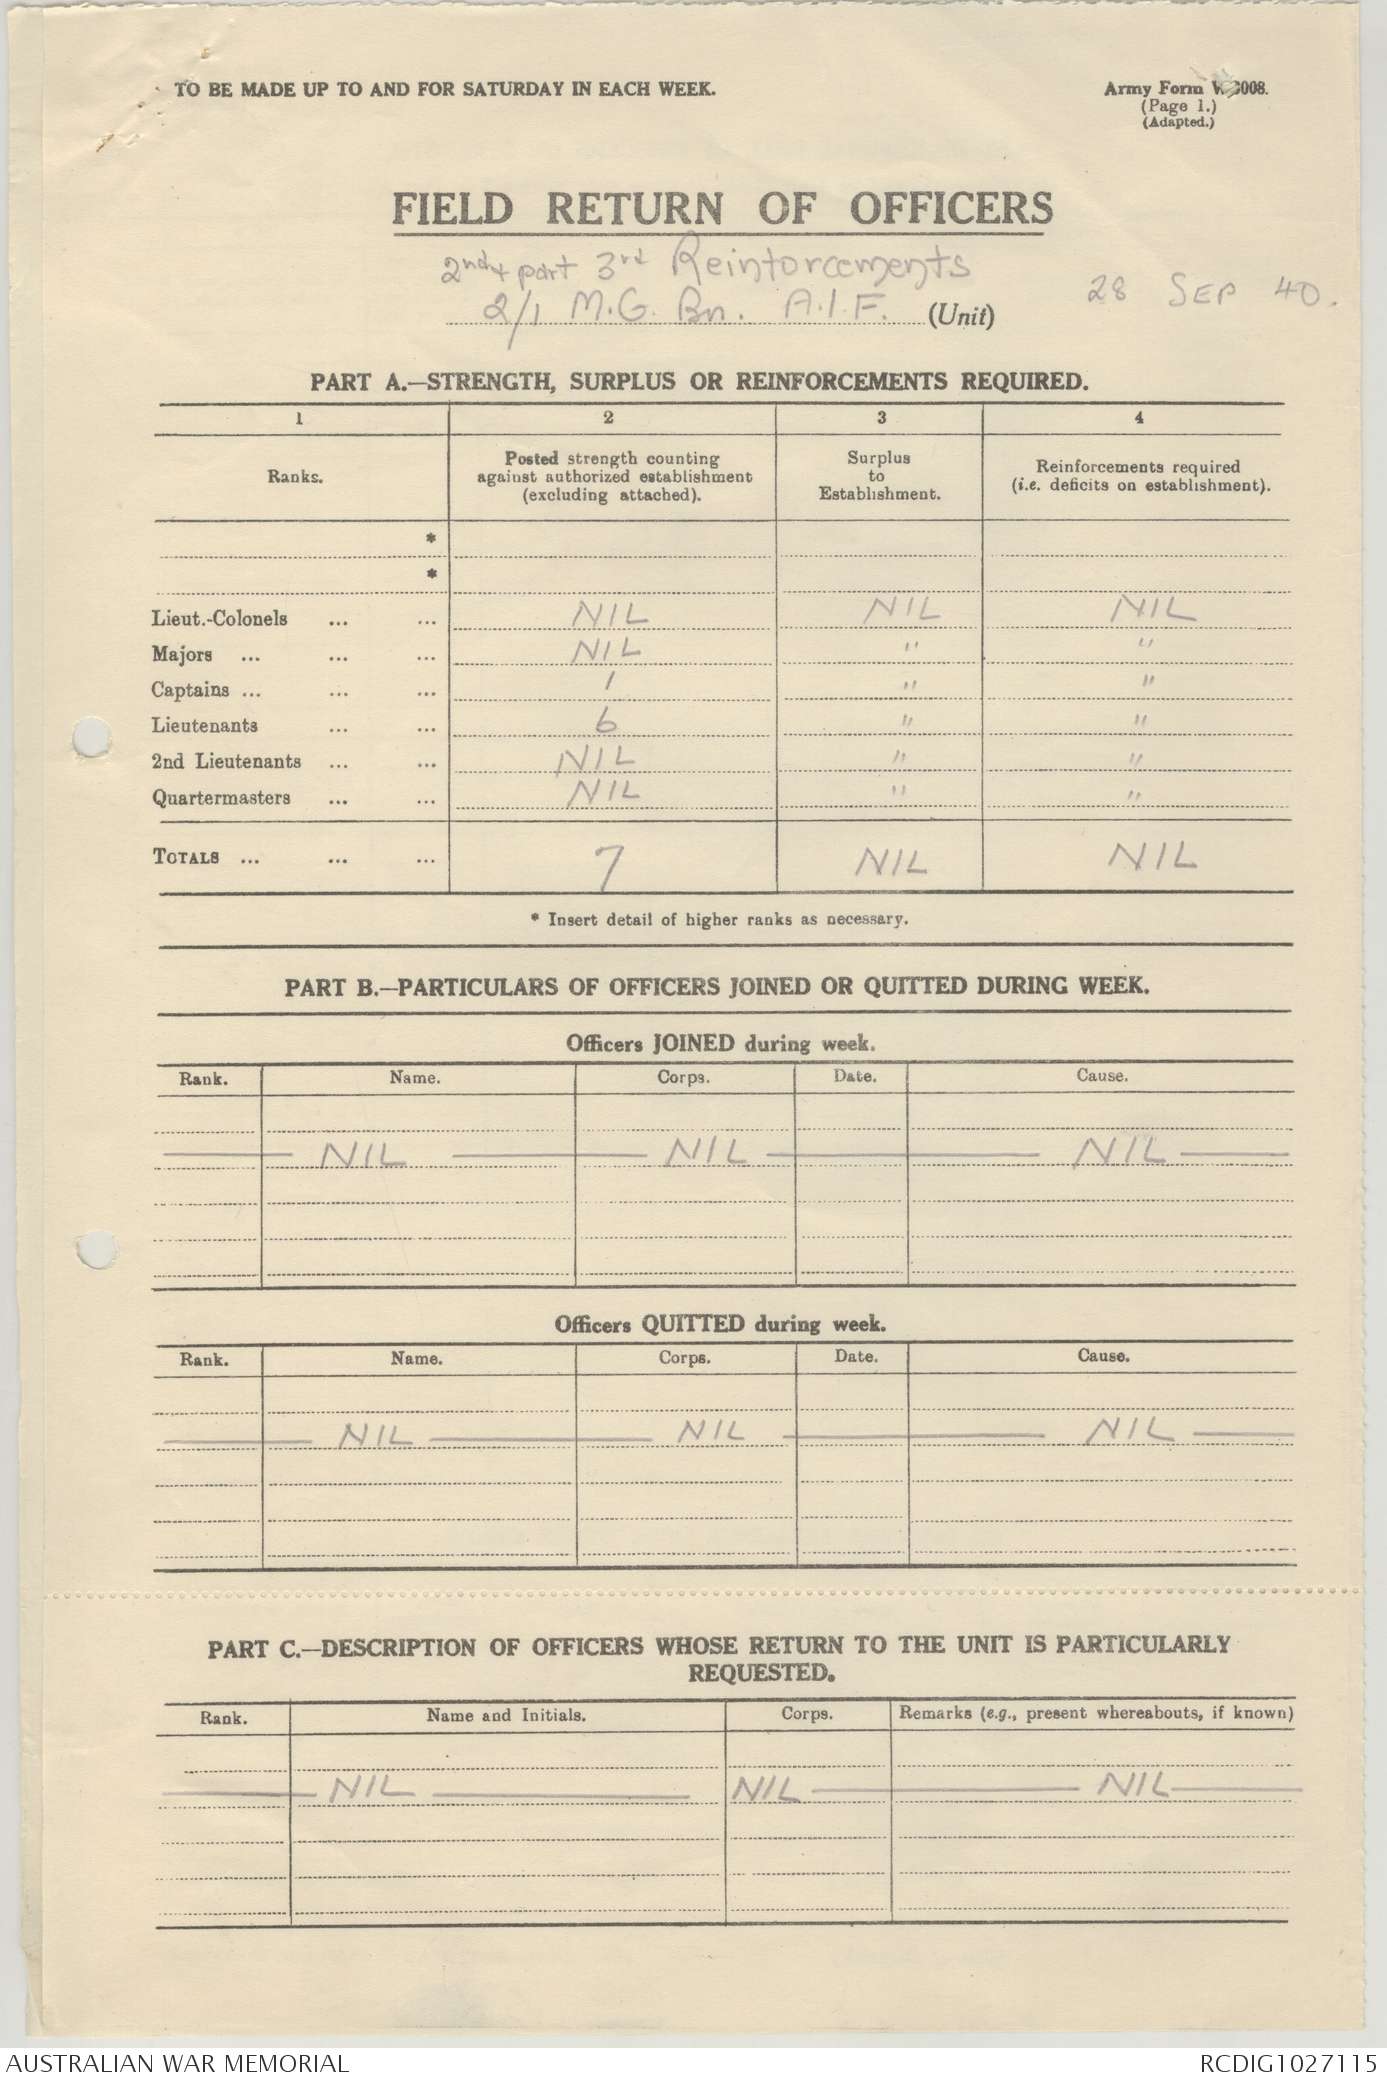 TO BE MADE UP TO AND FOR SATURDAY IN EACH WEEK.
Army Form W.3008.
(Page 1.)
(Adapted.)
FIELD RETURN OF OFFICERS
2nd & part 3rd Reinforcements
2/1 M.G. Bn. A.I.F. (Unit)
28 SEP 40.
PART A.—STRENGTH, SURPLUS OR REINFORCEMENTS REQUIRED.
1 2 3 4
Ranks.
Posted strength counting
against authorized establishment
(excluding attached).
Surplus
to
Establishment.
Reinforcements required
(i.e. deficits on establishment).
*
*
Lieut.-Colonels ... ... NIL NIL NIL
Majors ... ... ... NIL " "
Captains ... ... ... 1 " "
Lieutenants ... ... 6 " "
2nd Lieutenants ... ... NIL " "
Quartermasters ... ... NIL " "
TOTALS ... ... ... 7 NIL NIL
* Insert detail of higher ranks as necessary.
PART B.—PARTICULARS OF OFFICERS JOINED OR QUITTED DURING WEEK.
Officers JOINED during week.
Rank. Name. Corps. Date. Cause.
NIL NIL NIL
Officers QUITTED during week.
Rank. Name. Corps. Date. Cause.
NIL NIL NIL
PART C.—DESCRIPTION OF OFFICERS WHOSE RETURN TO THE UNIT IS PARTICULARLY
REQUESTED.
Rank. Name and Initials. Corps. Remarks (e.g., present whereabouts, if known)
NIL NIL NIL
AUSTRALIAN WAR MEMORIAL
RCDIG1027115